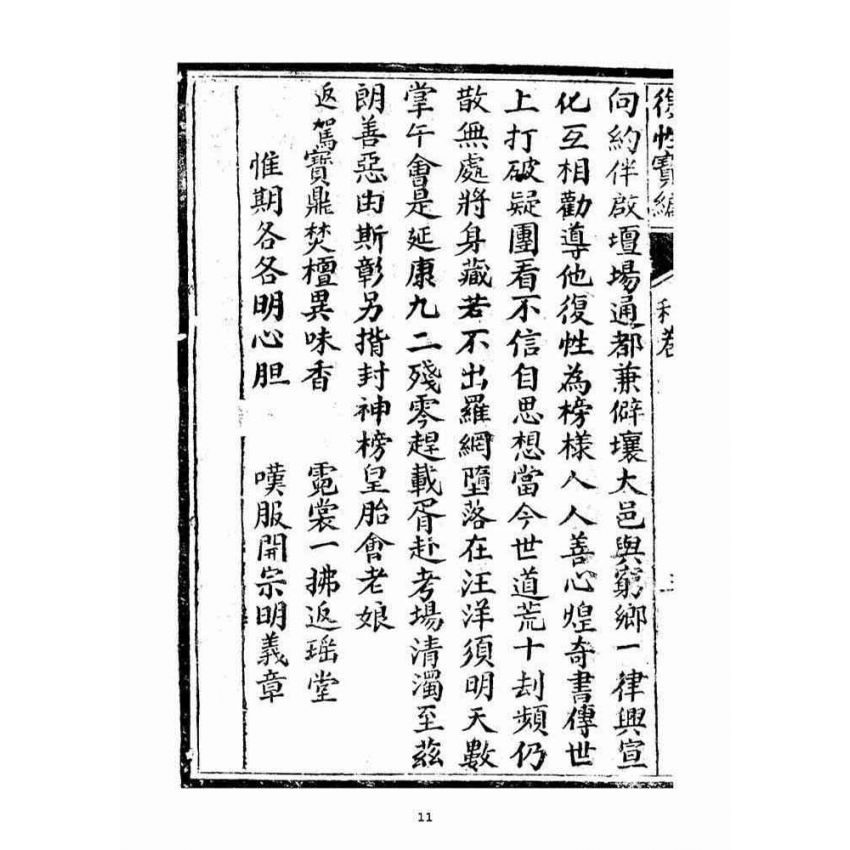 復性寶編
向約伴啟壇場通都兼僻壤大邑與窮鄉一律興宣
化互相勸導他復性為榜樣人人善心煌奇書傳世
上打破疑團看不信自思想當今世道荒十刦頻仍
散無處將身藏若不出羅網墮落在汪洋須明天數
掌午會是延康九二殘零趕載胥赴考場清濁至茲
朗善惡由斯彰另揩封神榜皇胎會老娘
返駕寶鼎焚檀異味香　霓裳一拂返瑤堂
惟期各各明心胆　嘆服開宗明義章
11